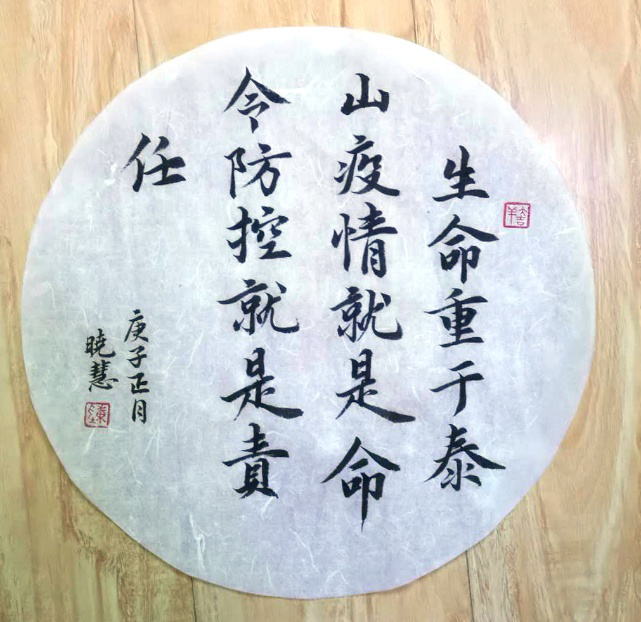 生命重于泰
山疫情就是命
令防控就是責
任
庚子正月
晓慧